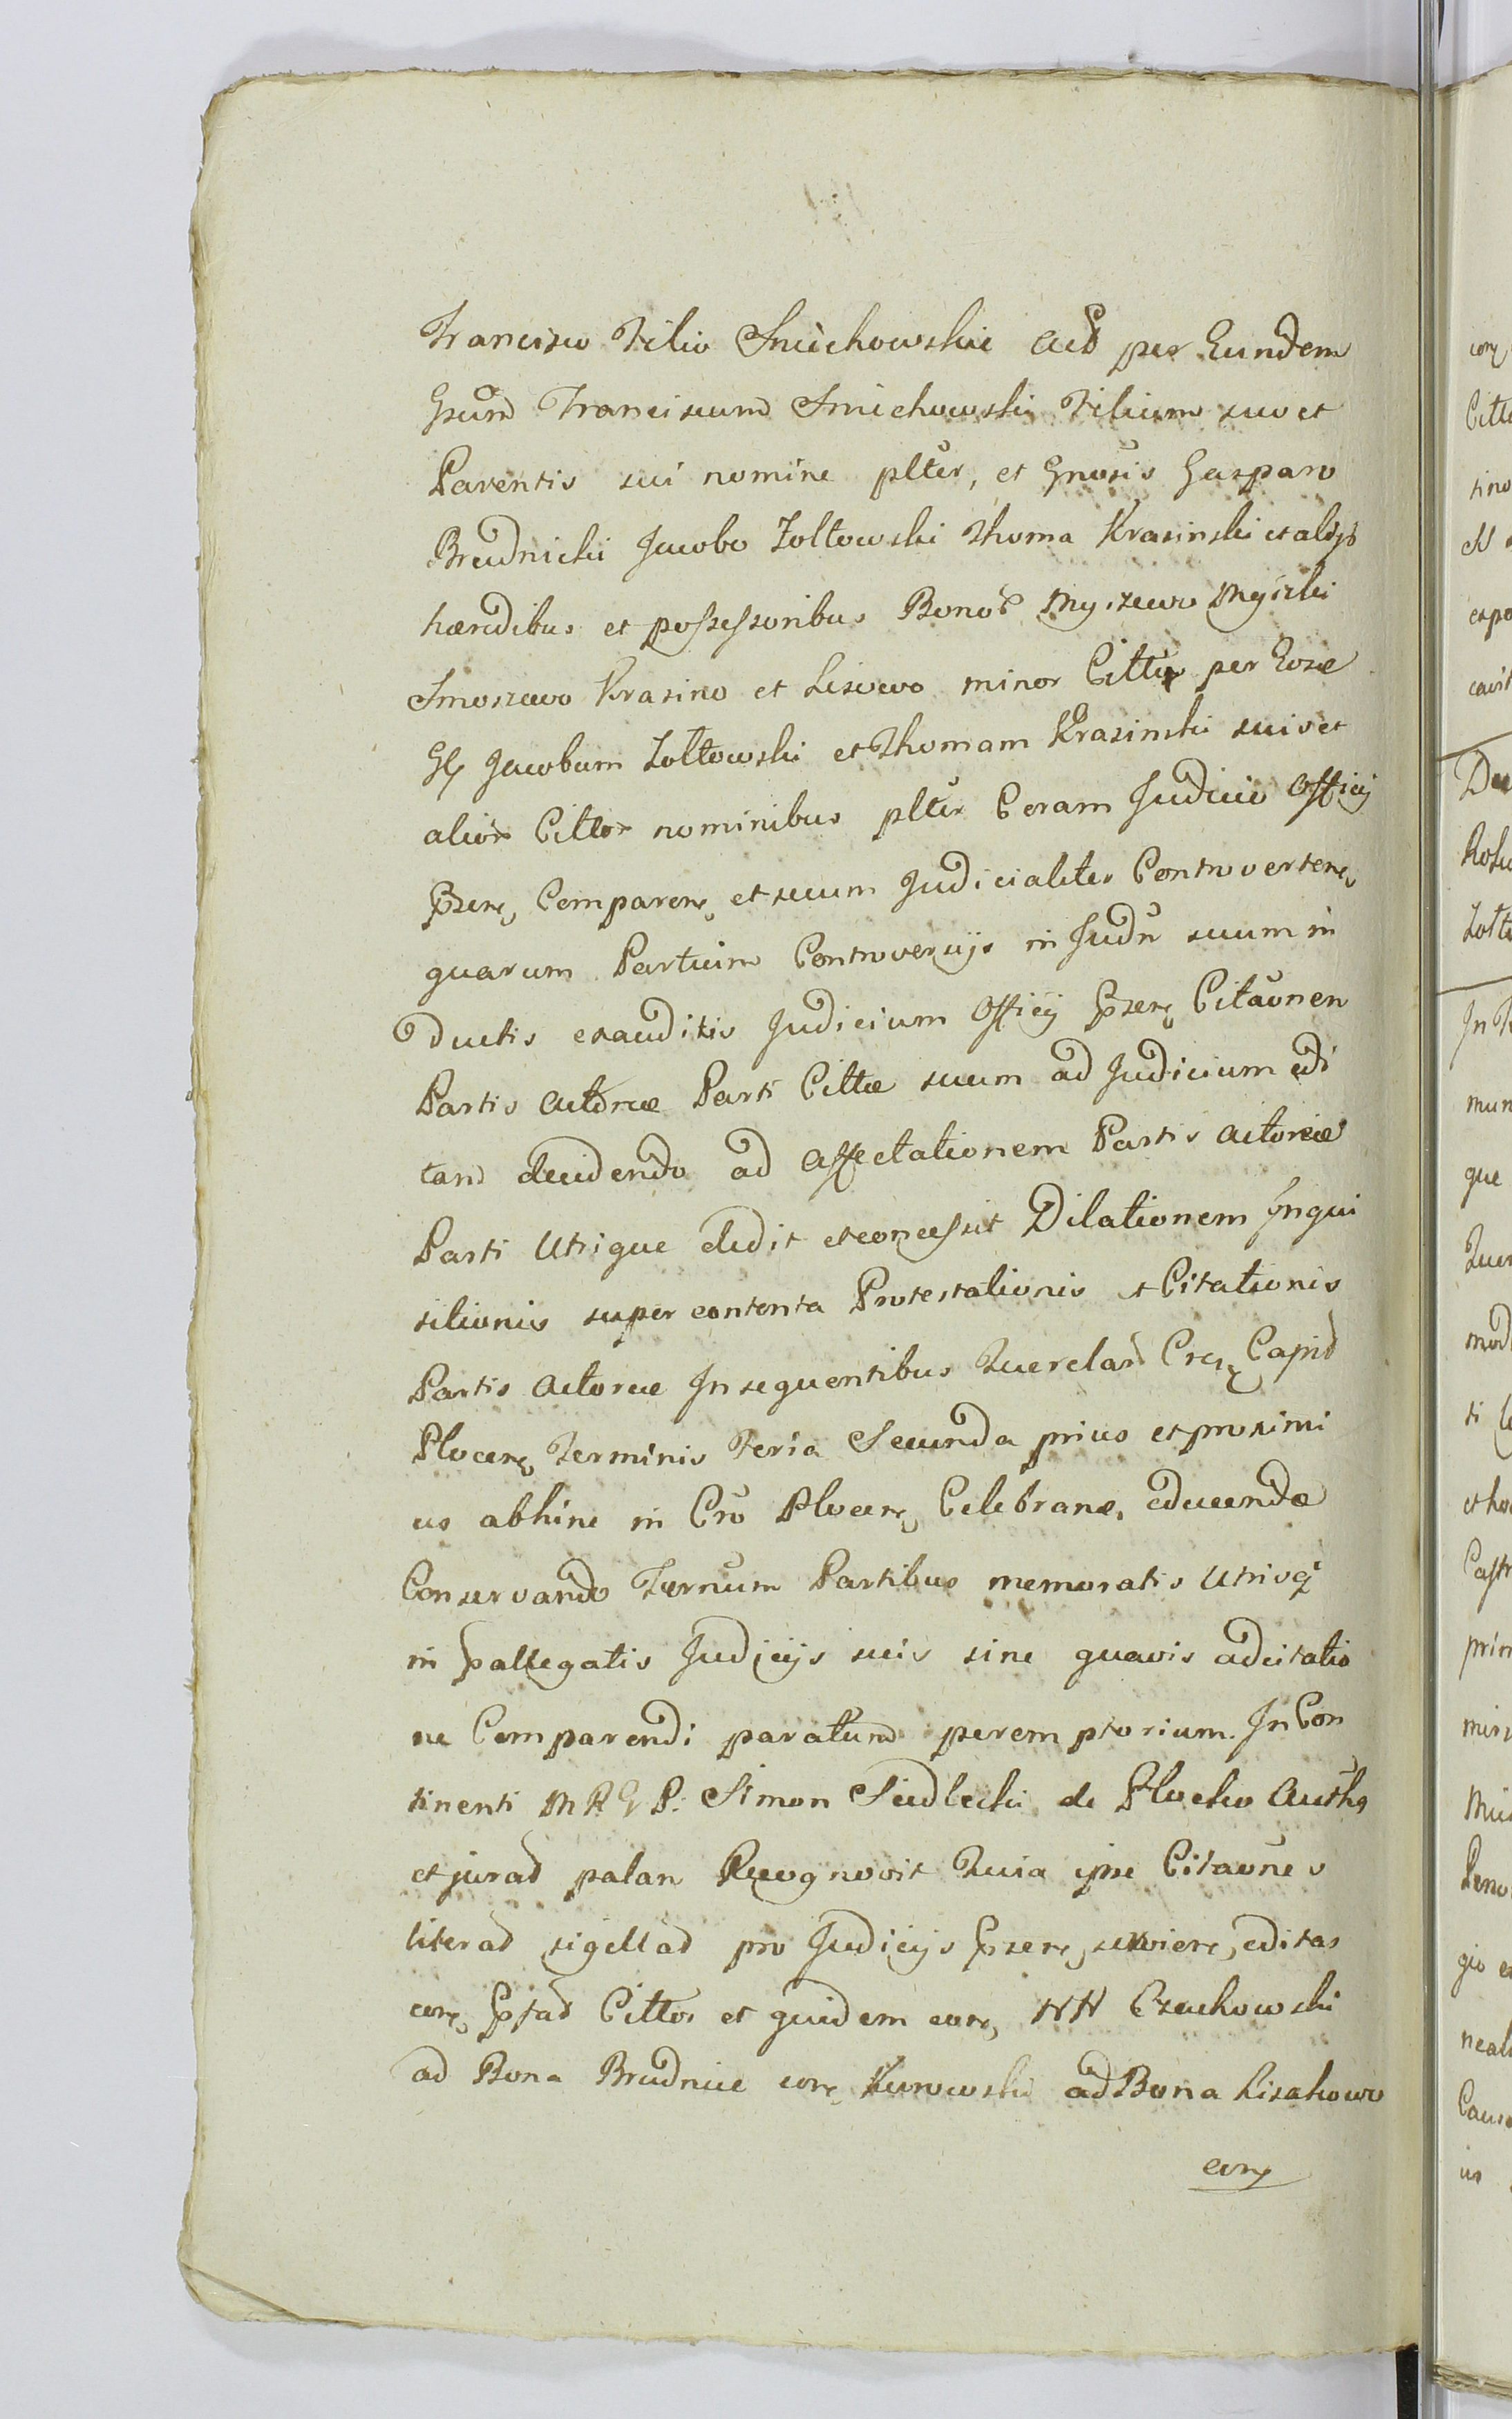 Francisco Filio Smichowskie Actõ per Eundem
Gsũm Franciscum Smichowski Filium suo et
Parentis sui nomine pltẽr, et Gnosis Gasparo
Brudnicki Jacobo Zoltowski Thoma Krasinski et alijs
hæredibus et possessoribus Bonoȓ Myszewo Myszki
Smoszewo Krasino et Lisowo minor Cittis per Eosd
GG Jacobum Zołtowski et Thomam Krasinski suis et
alior Cittor nominibus pltẽr Coram Judicio Officij
Pzen, Comparen, et secum Judicialiter Controverten,
quarum Partium Controversijs in Judm̃ suum in
ductis exauditis Judicium Officij Pzen, Citãonem
Partis Actoreæ Parti Cittæ suum ad Judicium edi
tam decidendo ad Affectationem Partis Actoreæ
Parti Utrique dedit et concessit Dilationem Inqui
sitionis super contenta Protestationis et Citationis
Partis Actoreæ In sequentibus Querelar̃ Cres, Capit̃
Plocen, Terminis Feria Secunda prius et proximi
us abhinc in Cro Plocen, Celebran, educendæ
Conservando Termũm Partibus memoratis Utrisq
in pallegatis Judicijs suis sine quavis adcitatio
ne Comparendi paratum peremptorium. In Con
tinenti M R G P: Simon Siedlecki de Plocko Auth
et jurat palam Recognovit Quia ipse Citãones
literas sigillat pro Judicijs Pzen, servien, editas
con, Pfat Cittos et quidem con, NN Czachowski
ad Bona Brudnice con, Kurowski ad Bona Lisakowo
con